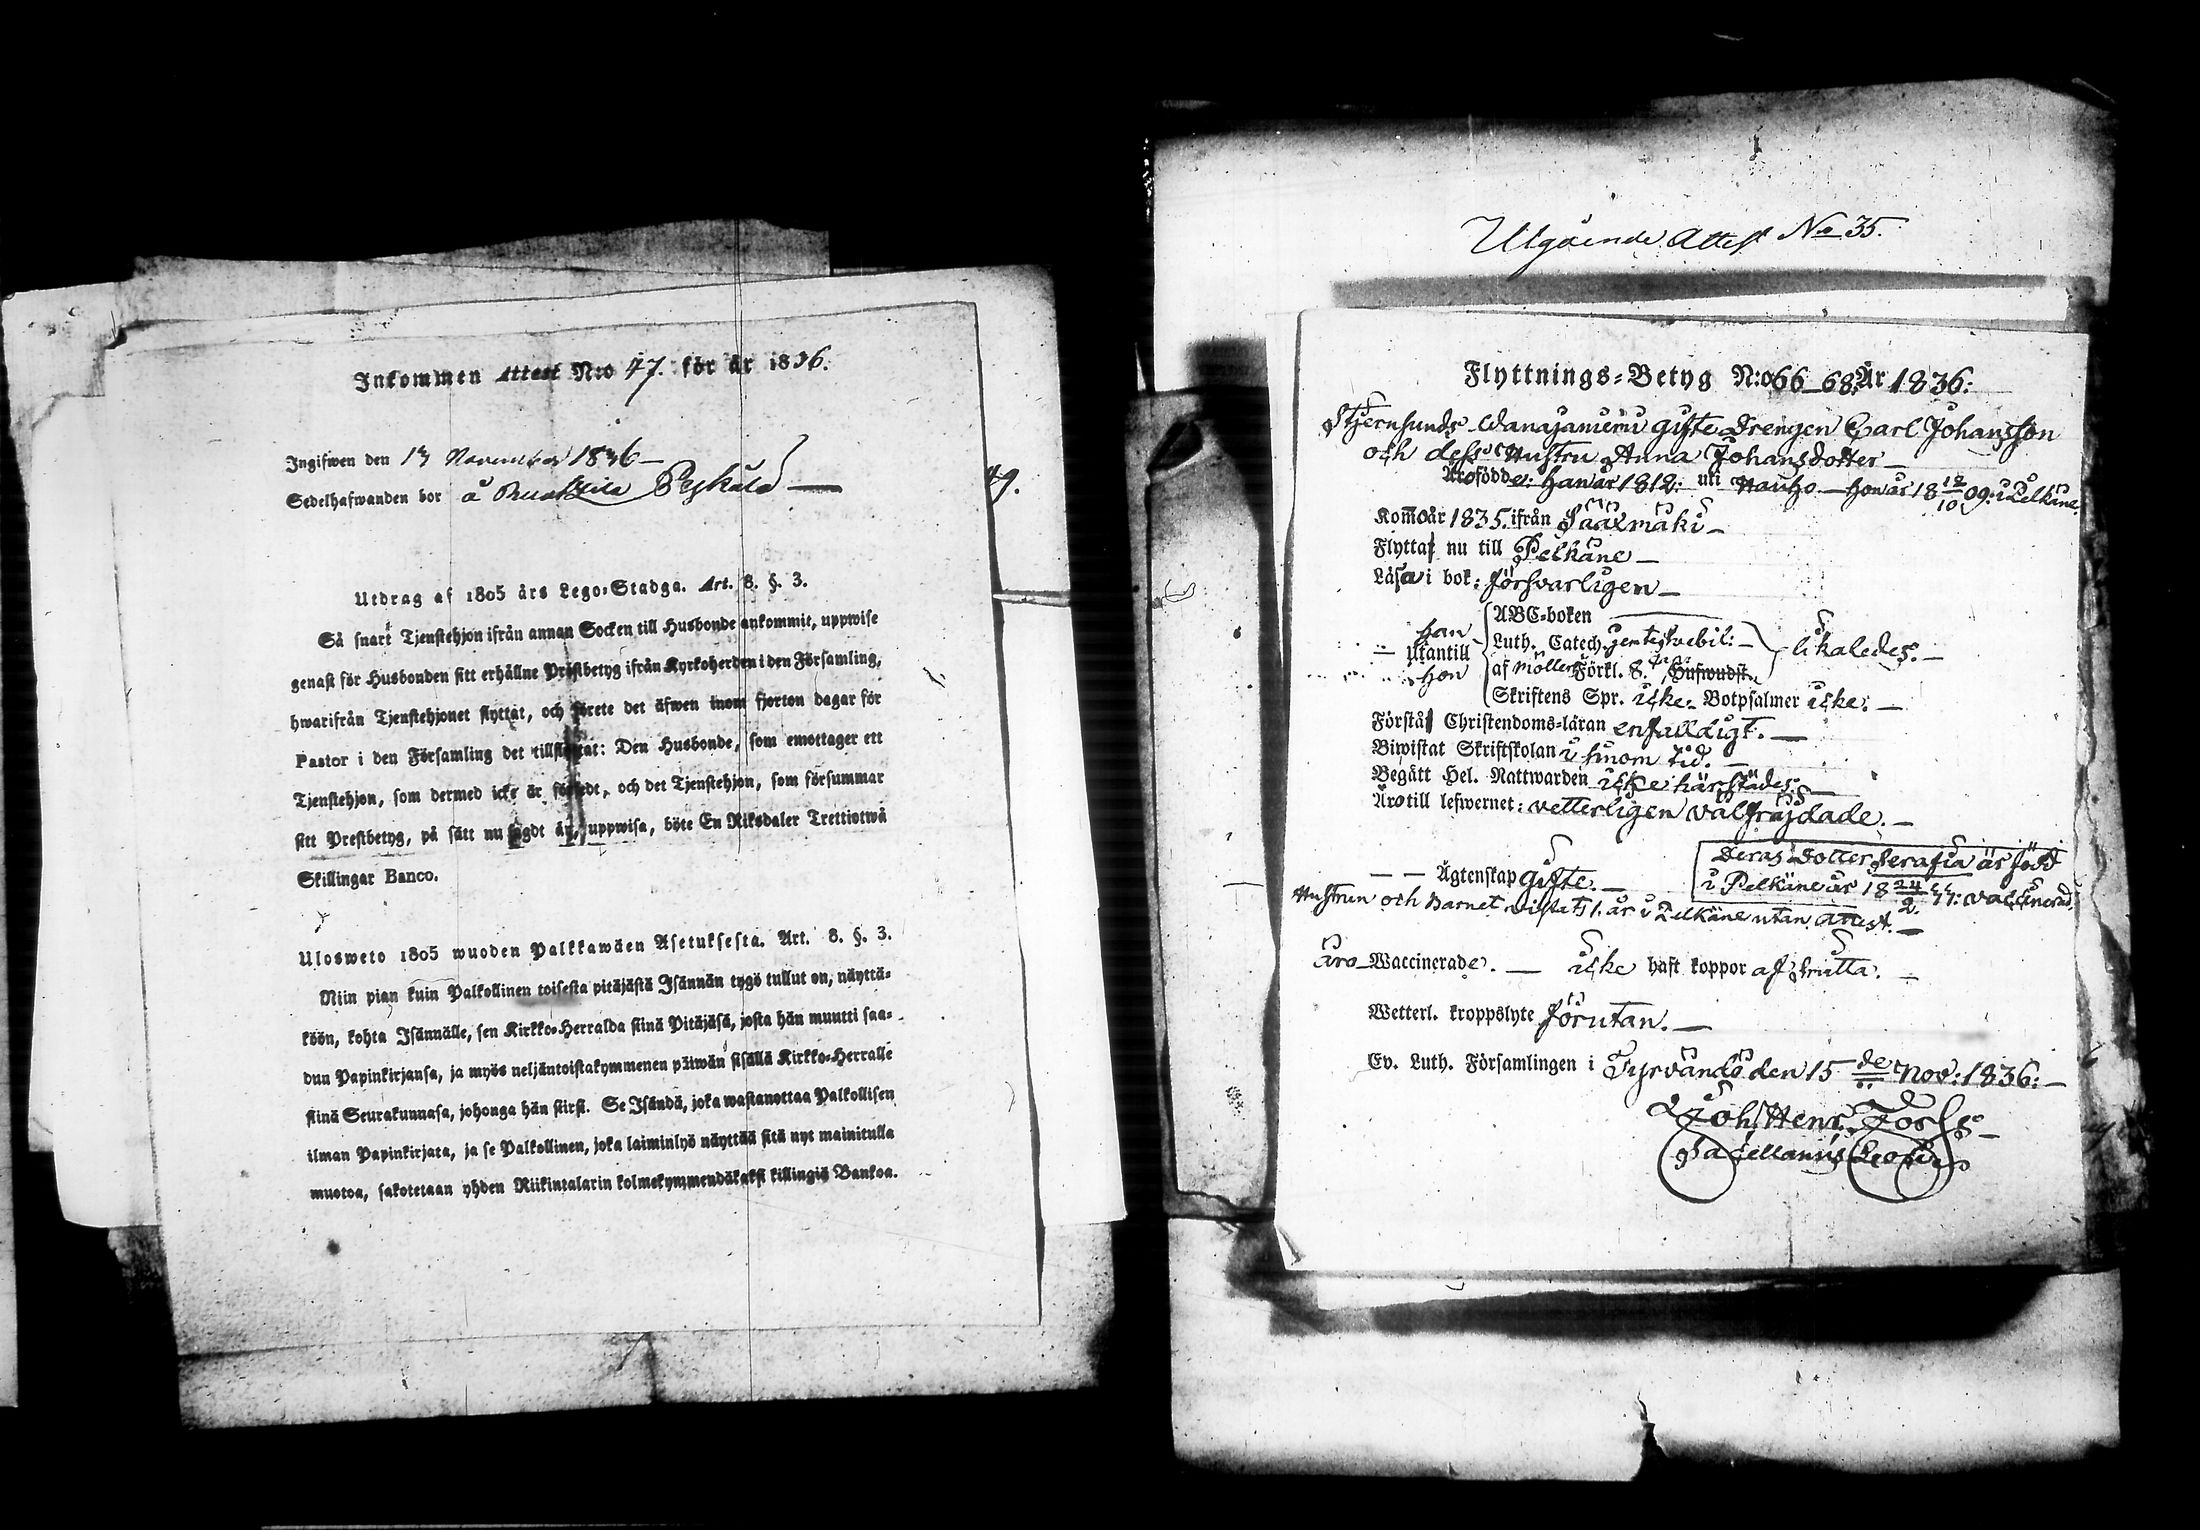 Inkommen Attest N:o 47. för år 1836.
Ingifwen den 13 November 1836
Sedelhafwanden bor å
49.
Utdrag af 1805 års Lego-Stadga. Art. 8. §. 3.
Så snart Tjenstehjon ifrån annan Socken till Husbonde ankommit, uppwise
genast för Husbonden sitt erhållne Prestbetyg ifrån Kyrkoherden i den Församling,
hwarifrån Tjenstehjonet flyttat, och förete det äfwen inom fjorton dagar för
Pastor i den Församling det tillflyttat: Den Husbonde, som emottager ett
Tjenstehjon, som dermed icke är försedt, och det Tjenstehjon, som försummar
sitt Prestbetyg, på sätt nu sagdt är, uppwisa, böte En Riksdaler Trettiotwå
Skillingar Banco.
Ulosweto 1805 wuoden Palkkawäen Asetuksesta. Art. 8. §. 3.
Niin pian kuin Palkollinen toisesta pitäjästä Isännän tygö tullut on, näyttä-
köön, kohta Isännälle, sen Kirkko-Herralda siinä Pitäjäsä, josta hän muutti saa-
dun Papinkirjansa, ja myös neljäntoistakymmenen päiwän sisällä Kirkko-Herralle
siinä Seurakunnasa, johonga hän siirsi. Se Isändä, joka wastanottaa Palkollisen
ilman Papinkirjata, ja se Palkollinen, joka laiminlyö näyttää sitä nyt mainitulla
muotoa, sakotetaan yhden Riikintalarin kolmekymmendäkaksi killingiä Bankoa.
Utgående Attest No 35.
Flyttnings-Betyg N:o 66_68. År 1836:
Stjernsunds Wanajaniemi gifte Drengen Carl Johansson
och dess Hustru Anna Johansdotter
Äro födde: han år 1812: uti Hauho — hon år 18 12/10 09: i Pelkäne.
Kommo år 1835. ifrån Sääxmäki
Flytta nu till Pelkäne
Läsa i bok: försvarligen
ABC-boken
han
Luth. Catech. jemte Svebil:
Utantill
likaledes.
hon
af Möllers Förkl. 8. Hufwudst.
Skriftens Spr. icke. Botpsalmer icke.
Förstå Christendoms-läran enfaldigt.
Biwistat Skriftskolan i sinom tid.
Begått Hel. Nattwarden icke härstädes.
Äro till lefwernet: vetterligen välfräjdade.
Deras Dotter Serafia är född
Ägtenskap gifte
i Pelkäne år 18 24/2. 33: vaccinerad.
Hustrun och Barnet vistats 1. år i Pelkäne utan Attest.
äro Waccinerade. — icke haft koppor af smitta.
Wetterl. kroppslyte förutan.
Ev. Luth. Församlingen i Tyrvändö den 15 de Nov: 1836:
Joh. Henr. Forss
Sacellanus Loci